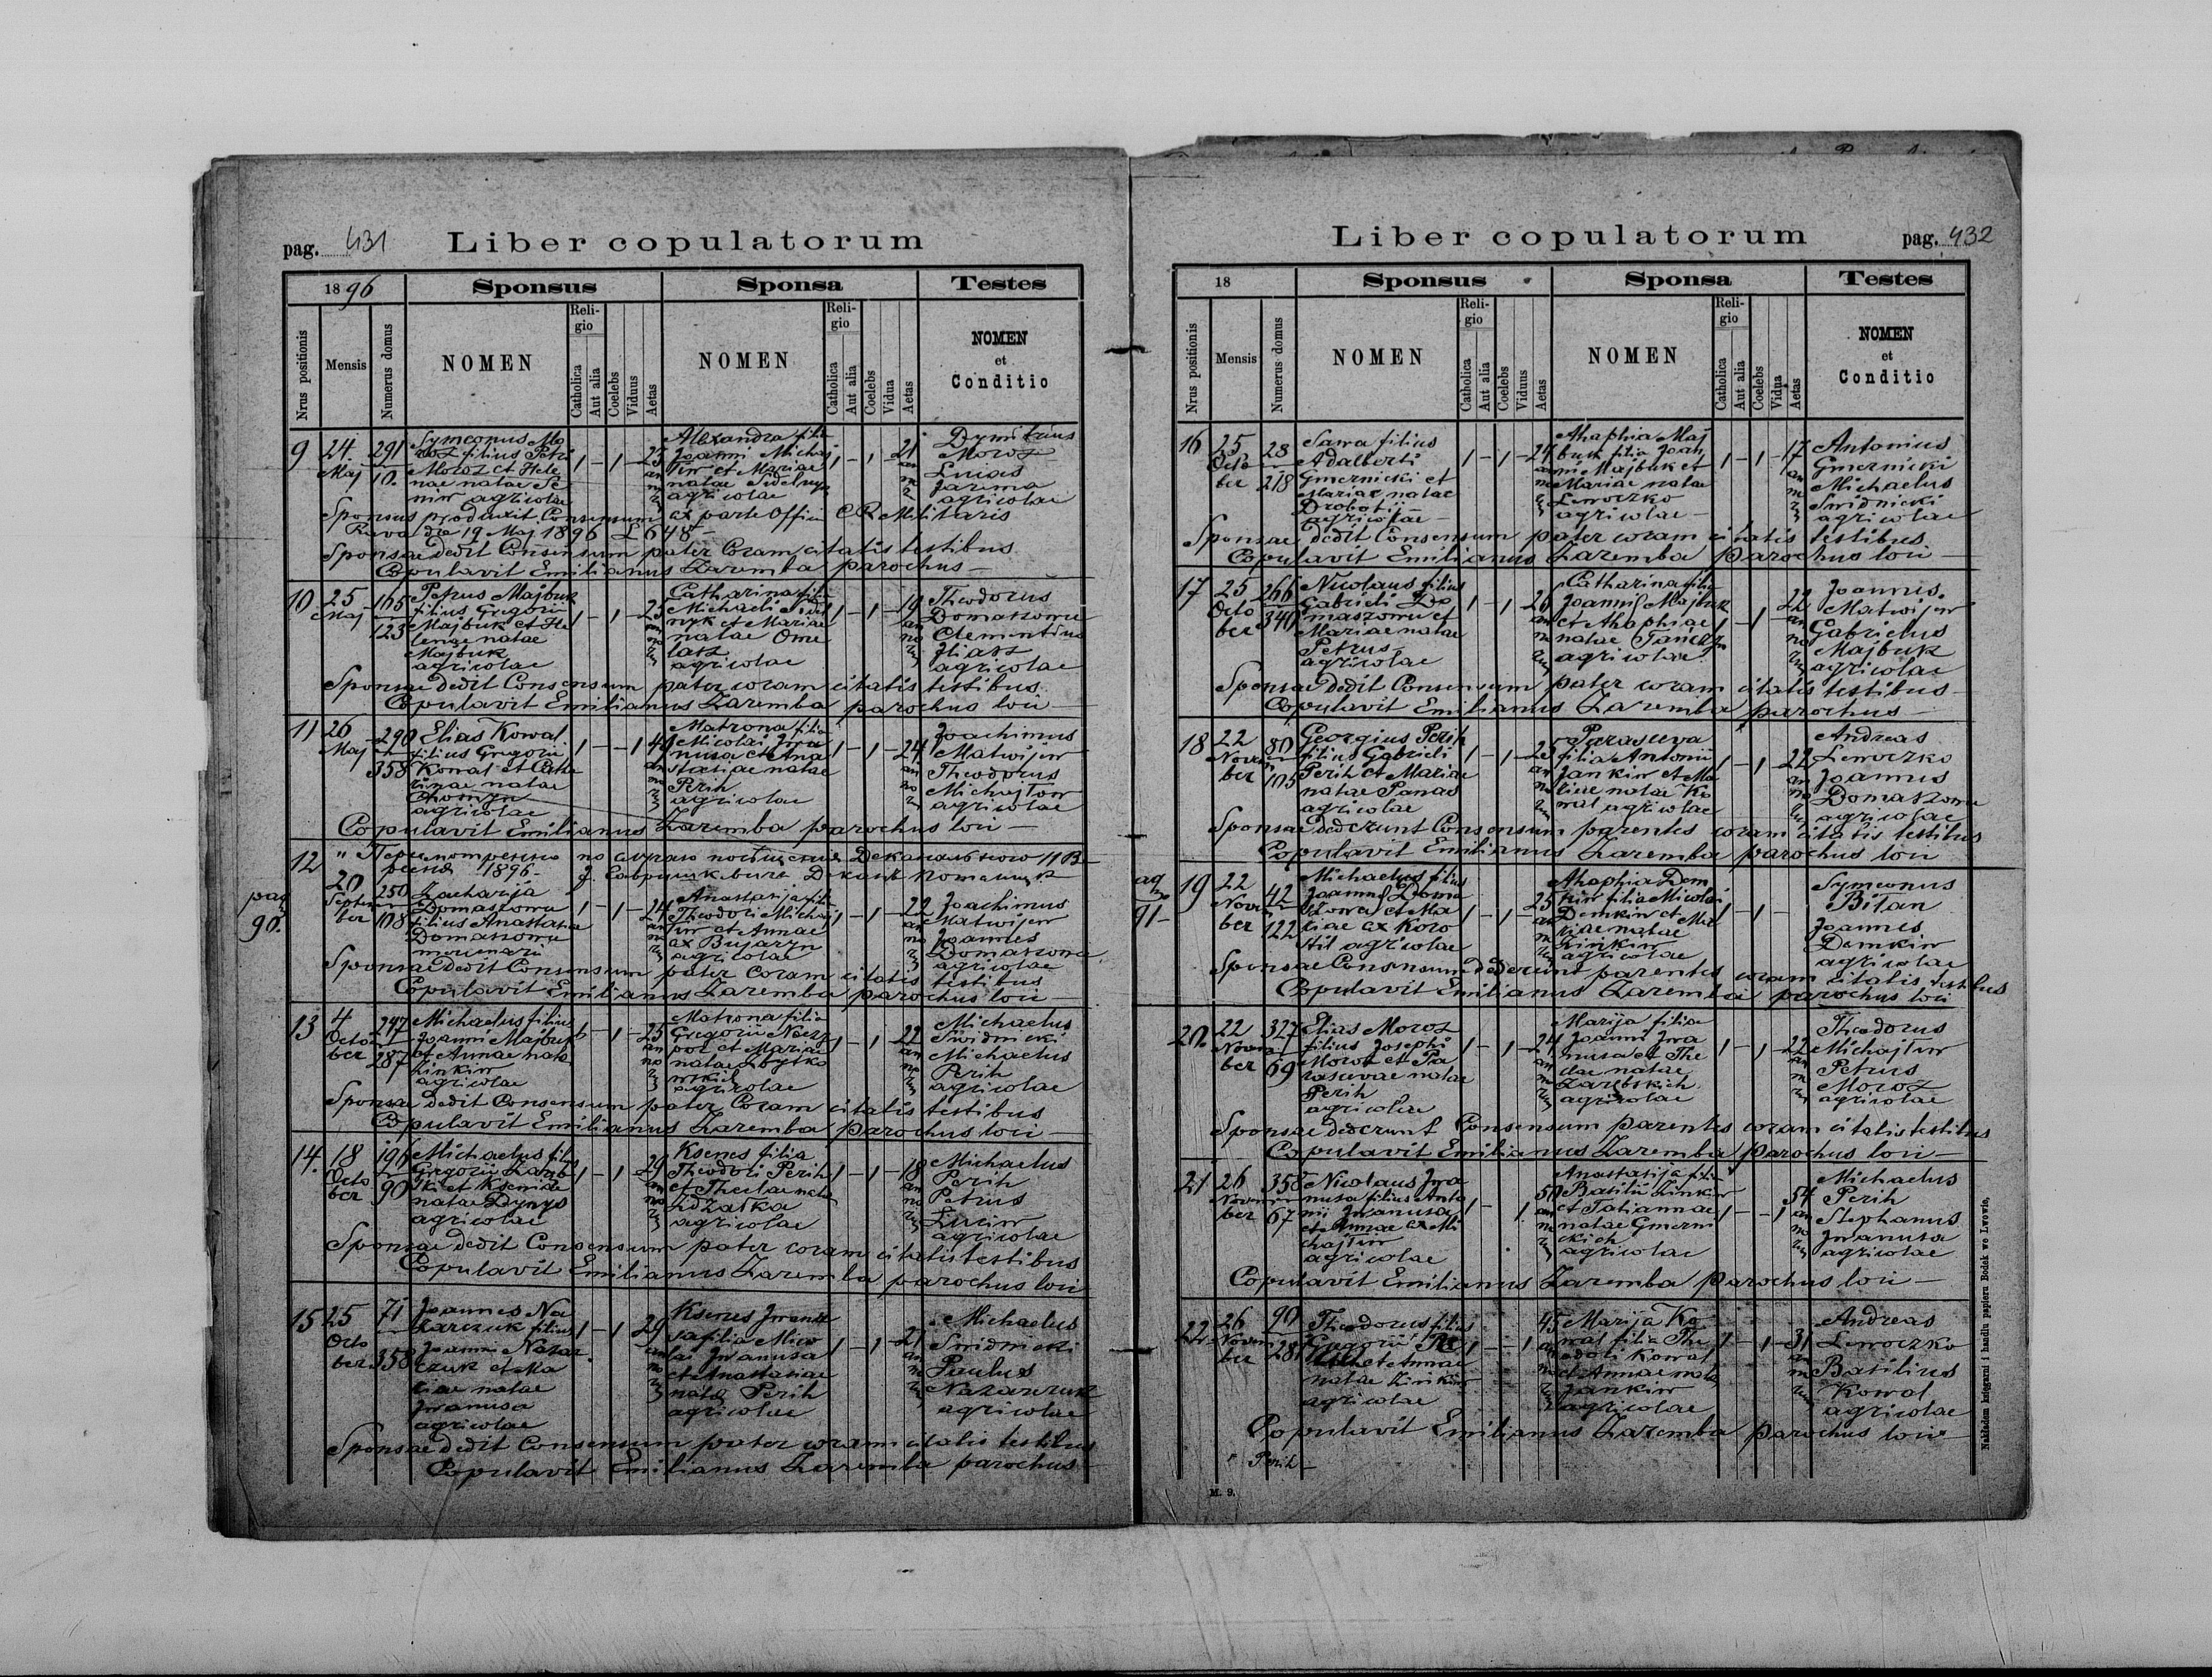 pag. 431 Liber copulatorum
1896 Sponsus Sponsa Testes
Nrus positionis Mensis Numerus domus NOMEN Religio Catholica Aut alia Coelebs Viduus Aetas NOMEN Religio Catholica Aut alia Coelebs Vidua Aetas NOMEN et Conditio
9 24 Maj 291 10
Symeonus Mo
roz filius Petri
Moroz et Hele
nae natae Se
niw agricolae
1 - 1 - 25
Alexandra filia
Joanni Michaj
liw et Mariae
natae Sidelnyk
agricolae
1 - 1 - 21
Dymitrius
Moroz
Lucas
Jarema
agricolae
Sponsus produxit Consensum ex parte Offici C. R. Militaris
Rawa die 19 Maj 1896 L 648
Sponsae dedit Consensum pater Coram citatis testibus
Copulavit Emilianus Zaremba parochus
10 25 Maj 165 123
Petrus Majbuk
filius Gregorii
Majbuk et He
lenae natae
Majbuk
agricolae
1 - 1 - 25
Catharina filia
Michaeli Sidel
nyk et Mariae
natae Ome
lasz
agricolae
1 - 1 - 19
Theodorus
Domaszowu
Clementius
Iliasz
agricolae
Sponsae dedit Consensum pater coram citatis testibus
Copulavit Emilianus Zaremba parochus loci
11 26 Maj 290 358
Elias Kowal
filius Gregorii
Kowal et Catha
rinae natae
agricolae
1 - - 1 49
Matrona filia
Nicolai Iwa
nusa et Ana
stasiae natae
Perih
agricolae
1 - 1 - 24
Joachimus
Matwijew
Theodorus
Michajlow
agricolae
Copulavit Emilianus Zaremba parochus loci
12
1896
pag 90.
20 Septem ber 250 108
Zacharija
Domaszowu
filius Anastasiae
Domaszowu
mercenarii
1 - 1 - 24
Anastasija filia
Theodori Michaj
liw et Annae
ex Bujaryn
agricolae
1 - 1 - 22
Joachimus
Matwijew
Joannes
Domaszowu
agricolae
Sponsae dedit Consensum pater Coram citatis testibus
Copulavit Emilianus Zaremba parochus loci
13 4 Octo ber 247 287
Michaelus filius
Joanni Majbuk
et Annae nata
Zinkiw
agricolae
- 1 - 25
Matrona filia
Gregorii
et Mariae
natae
agricolae
1 - 1 22
Michaelus
Swidnicki
Michaelus
Perih
agricolae
Sponsae dedit Consensum pater Coram citatis testibus
Copulavit Emilianus Zaremba parochus loci
14. 18 Octo ber 196 90
Michaelus filius
Gregorii
et Kseniae
natae Dynys
agricolae
1 - 1 29
Ksenes filia
Theodori Perih
et Theclae nata
agricolae
1 - 1 - 18
Michaelus
Perih
Petrus
Luciw
agricolae
Sponsae dedit Consensum pater coram citatis testibus
Copulavit Emilianus Zaremba parochus loci
15 25 Octo ber 71 358
Joannes Na
zarczuk filius
Joanni Nazar
czuk et Ma
riae natae
Iwanusa
agricolae
1 - 1 29
Ksenes Iwanu
sa filia Nico
lai Iwanusa
et Anastasiae
nata Perih
agricolae
1 - 1 - 21
Michaelus
Swidnicki
Paulus
Nazarczuk
agricolae
Sponsae dedit Consensum pater coram citatis testibus
Copulavit Emilianus Zaremba parochus
Liber copulatorum pag. 432
18 Sponsus Sponsa Testes
Nrus positionis Mensis Numerus domus NOMEN Religio Catholica Aut alia Coelebs Viduus Aetas NOMEN Religio Catholica Aut alia Coelebs Vidua Aetas NOMEN et Conditio
16 25 Octo ber 28 218
Sawa filius
Adalberti
Gmernicki et
Mariae natae
Drobotij
agricolae
1 - 1 - 24
Ahaphia Maj
buk filia Joan
ni Majbuk et
Mariae natae
Lewoczko
agricolae
1 - 1 - 17
Antonius
Gmernicki
Michaelus
Swidnicki
agricolae
Sponsae dedit Consensum pater coram citatis testibus
Copulavit Emilianus Zaremba parochus loci
17 25 Octo ber 266 340
Nicolaus filius
Gabrieli Do
maszowu et
Mariae natae
Petrus
agricolae
1 - 1 26
Catharina filia
Joannis Majbuk
et Ahaphiae
natae
agricolae
1 - 1 22
Joannes
Matwijew
Gabrielus
Majbuk
agricolae
Sponsae dedit Consensum pater coram citatis testibus
Copulavit Emilianus Zaremba parochus
18 22 Novem ber 80 105
Georgius Perih
filius Gabrieli
Perih et Mariae
natae Panas
agricolae
1 - 1 - 25
Parasceva
filia Antonii
Jankiw et Ma
riae natae Ko
wal agricolae
1 - 1 22
Andreas
Lewoczko
Joannes
Domaszowu
agricolae
Sponsae dederunt Consensum parentes coram citatis testibus
Copulavit Emilianus Zaremba parochus loci
pag 91
19 22 Novem ber 42 122
Michaelus filius
Joannis Doma
szowu et Ma
riae ex Koro
stil agricolae
1 - 1 - 25
Ahaphia Dem
kiw filia Nicolai
Demkiw et Ma
riae natae
Zinkiw
agricolae
1 - 1 -
Symeonus
Bilan
Joannes
Demkiw
agricolae
Sponsae Consensum dederunt parentes coram citatis testibus
Copulavit Emilianus Zaremba parochus loci
20. 22 Novem ber 327 69
Elias Moroz
filius Josephi
Moroz et Pa
rascevae natae
Perih
agricolae
1 - 1 - 24
Marija filia
Joanni Iwa
nusa et The
clae natae
Zarebskich
agricolae
1 - 1 - 22
Theodorus
Michajliw
Petrus
Moroz
agricolae
Sponsae dederunt Consensum parentes coram citatis testibus
Copulavit Emilianus Zaremba parochus loci
21 26 Novem ber 358 67
Nicolaus Iwa
nusa filius Anto
nii Iwanusa
et Annae ex Mi
chajliw
agricolae
1 - 1. 50
Anastasija filia
Basilii Zinkiw
et Tatiannae
natae Gmerni
ckich
agricolae
1 - - 1 54
Michaelus
Perih
Stephanus
Iwanusa
agricolae
Copulavit Emilianus Zaremba parochus loci
22 26 Novem ber 90 281
Theodorus filius
Gregorii
et Annae
natae Zinkiw
agricolae
1 - - 1 45
Marija Ko
wal filia The
odori Kowal
et Annae nata
Jankiw
agricolae
1 - 1 - 31
Andreas
Lewoczko
Basilius
Kowal
agricolae
Copulavit Emilianus Zaremba parochus loci
Perih
M. 9.
Nakładem księgarni i handlu papieru Bodek we Lwowie.